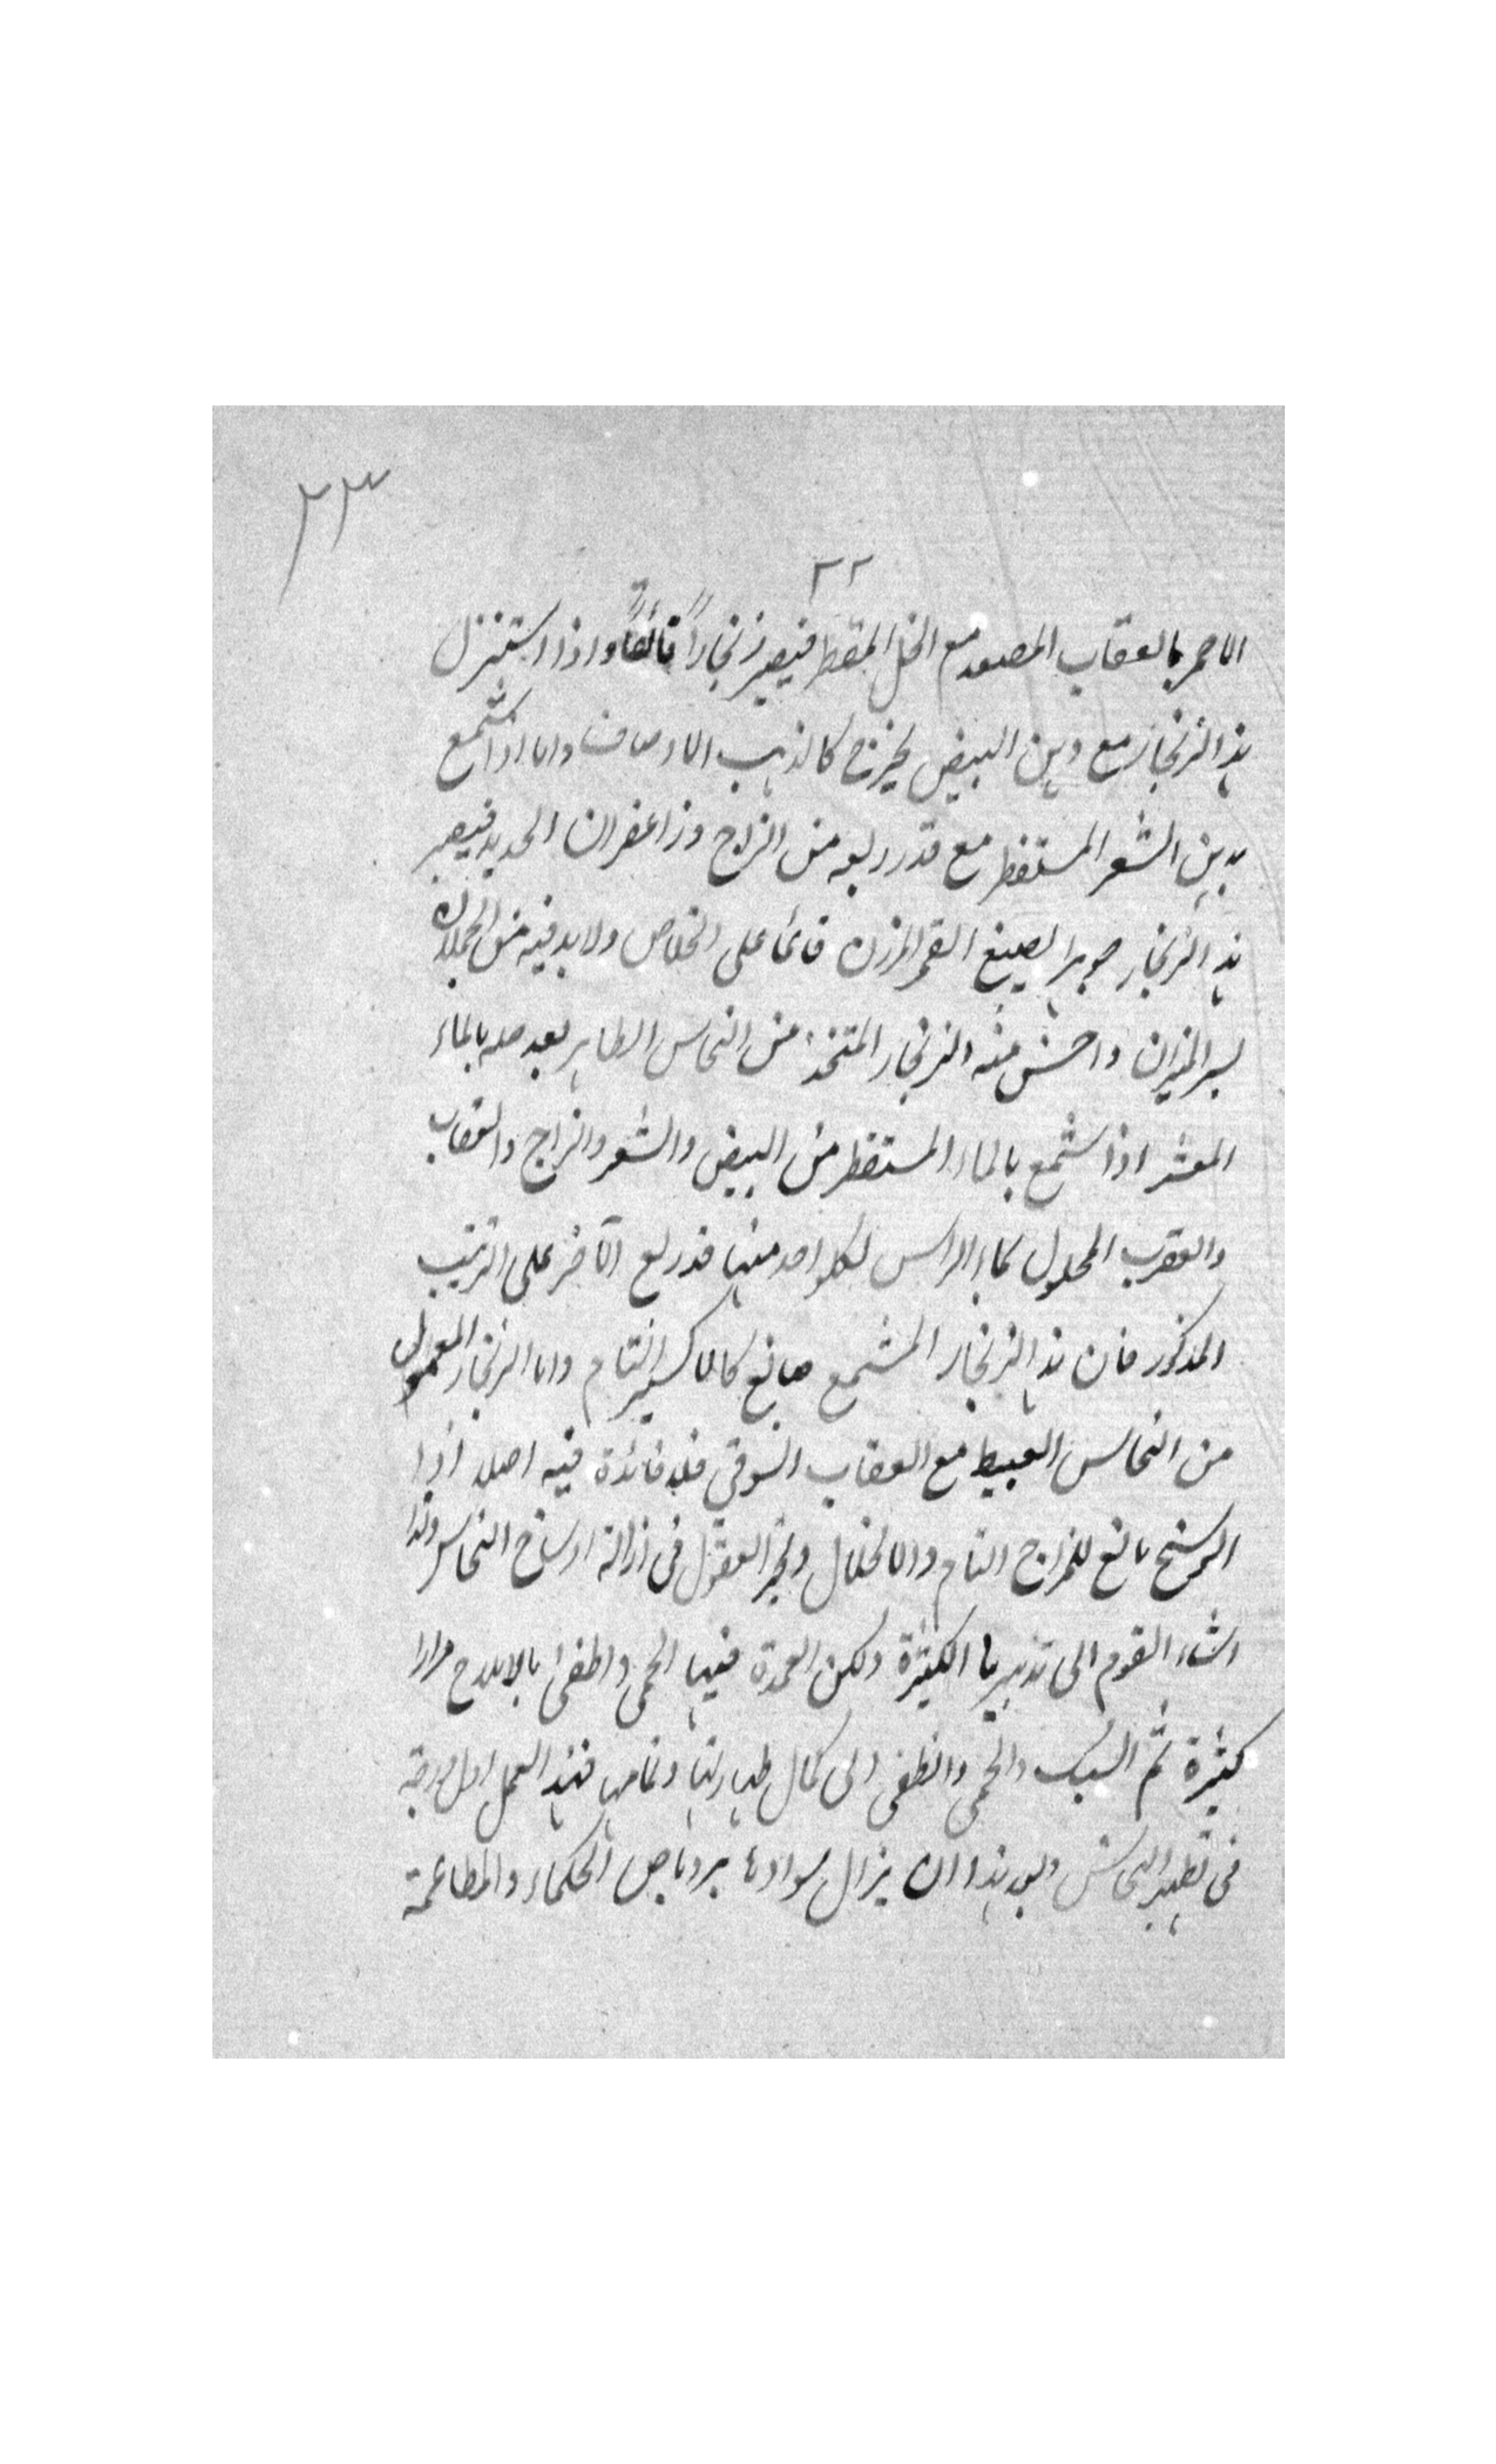 ٢٣
٢٢
الاحمر بالعقاب المصعد مع الخل المقطر فيصير زنجاراً فائقاً واذا استنزل
هذا الزنجار مع دهن البيض يخرج كالذهب الاوصاف واما اذا شمع
بدهن الشعر المستقطر مع قدر ربعه من الزاج وزاعفران الحديد فيصير
هذا الزنجار جوهرا يصبغ القمر المرزن قائما على الخلاص ولا بد فيه من الحملان
لسر الميزان واحسن منه الزنجار المتخذ من النحاس الطاهر بعد حله بالماء
المعشر اذا شمع بالماء المستقطر من البيض والشعر والزاج والعقاب
والعقرب المحلول كماء الراس لكلواحد منها قدر ربع الآخر على الترتيب
المذكور فان هذا الزنجار المشمع صابغ كالاكسير التام واما الزنجار المعمول
من النحاس العبيط مع العقاب السوقي فلا فائدة فيه اصلا اذا
الوسخ مانع للمزاج التام والانحلال وتحير العقول في ازالة اوساخ النحاس ولذا
اشار القوم الى تدبيرها الكثيرة ولكن العمدة فيها الحمى واطفئ بالاملاح مرارا
كثيرة ثم السبك والحمى والطفى الى كمال طهارتها ونقائها فهذا العمل اول درجة
في تطهير النحاس وبعد هذا ان يزال سوادها برصاص الحكماء والمطاعمة